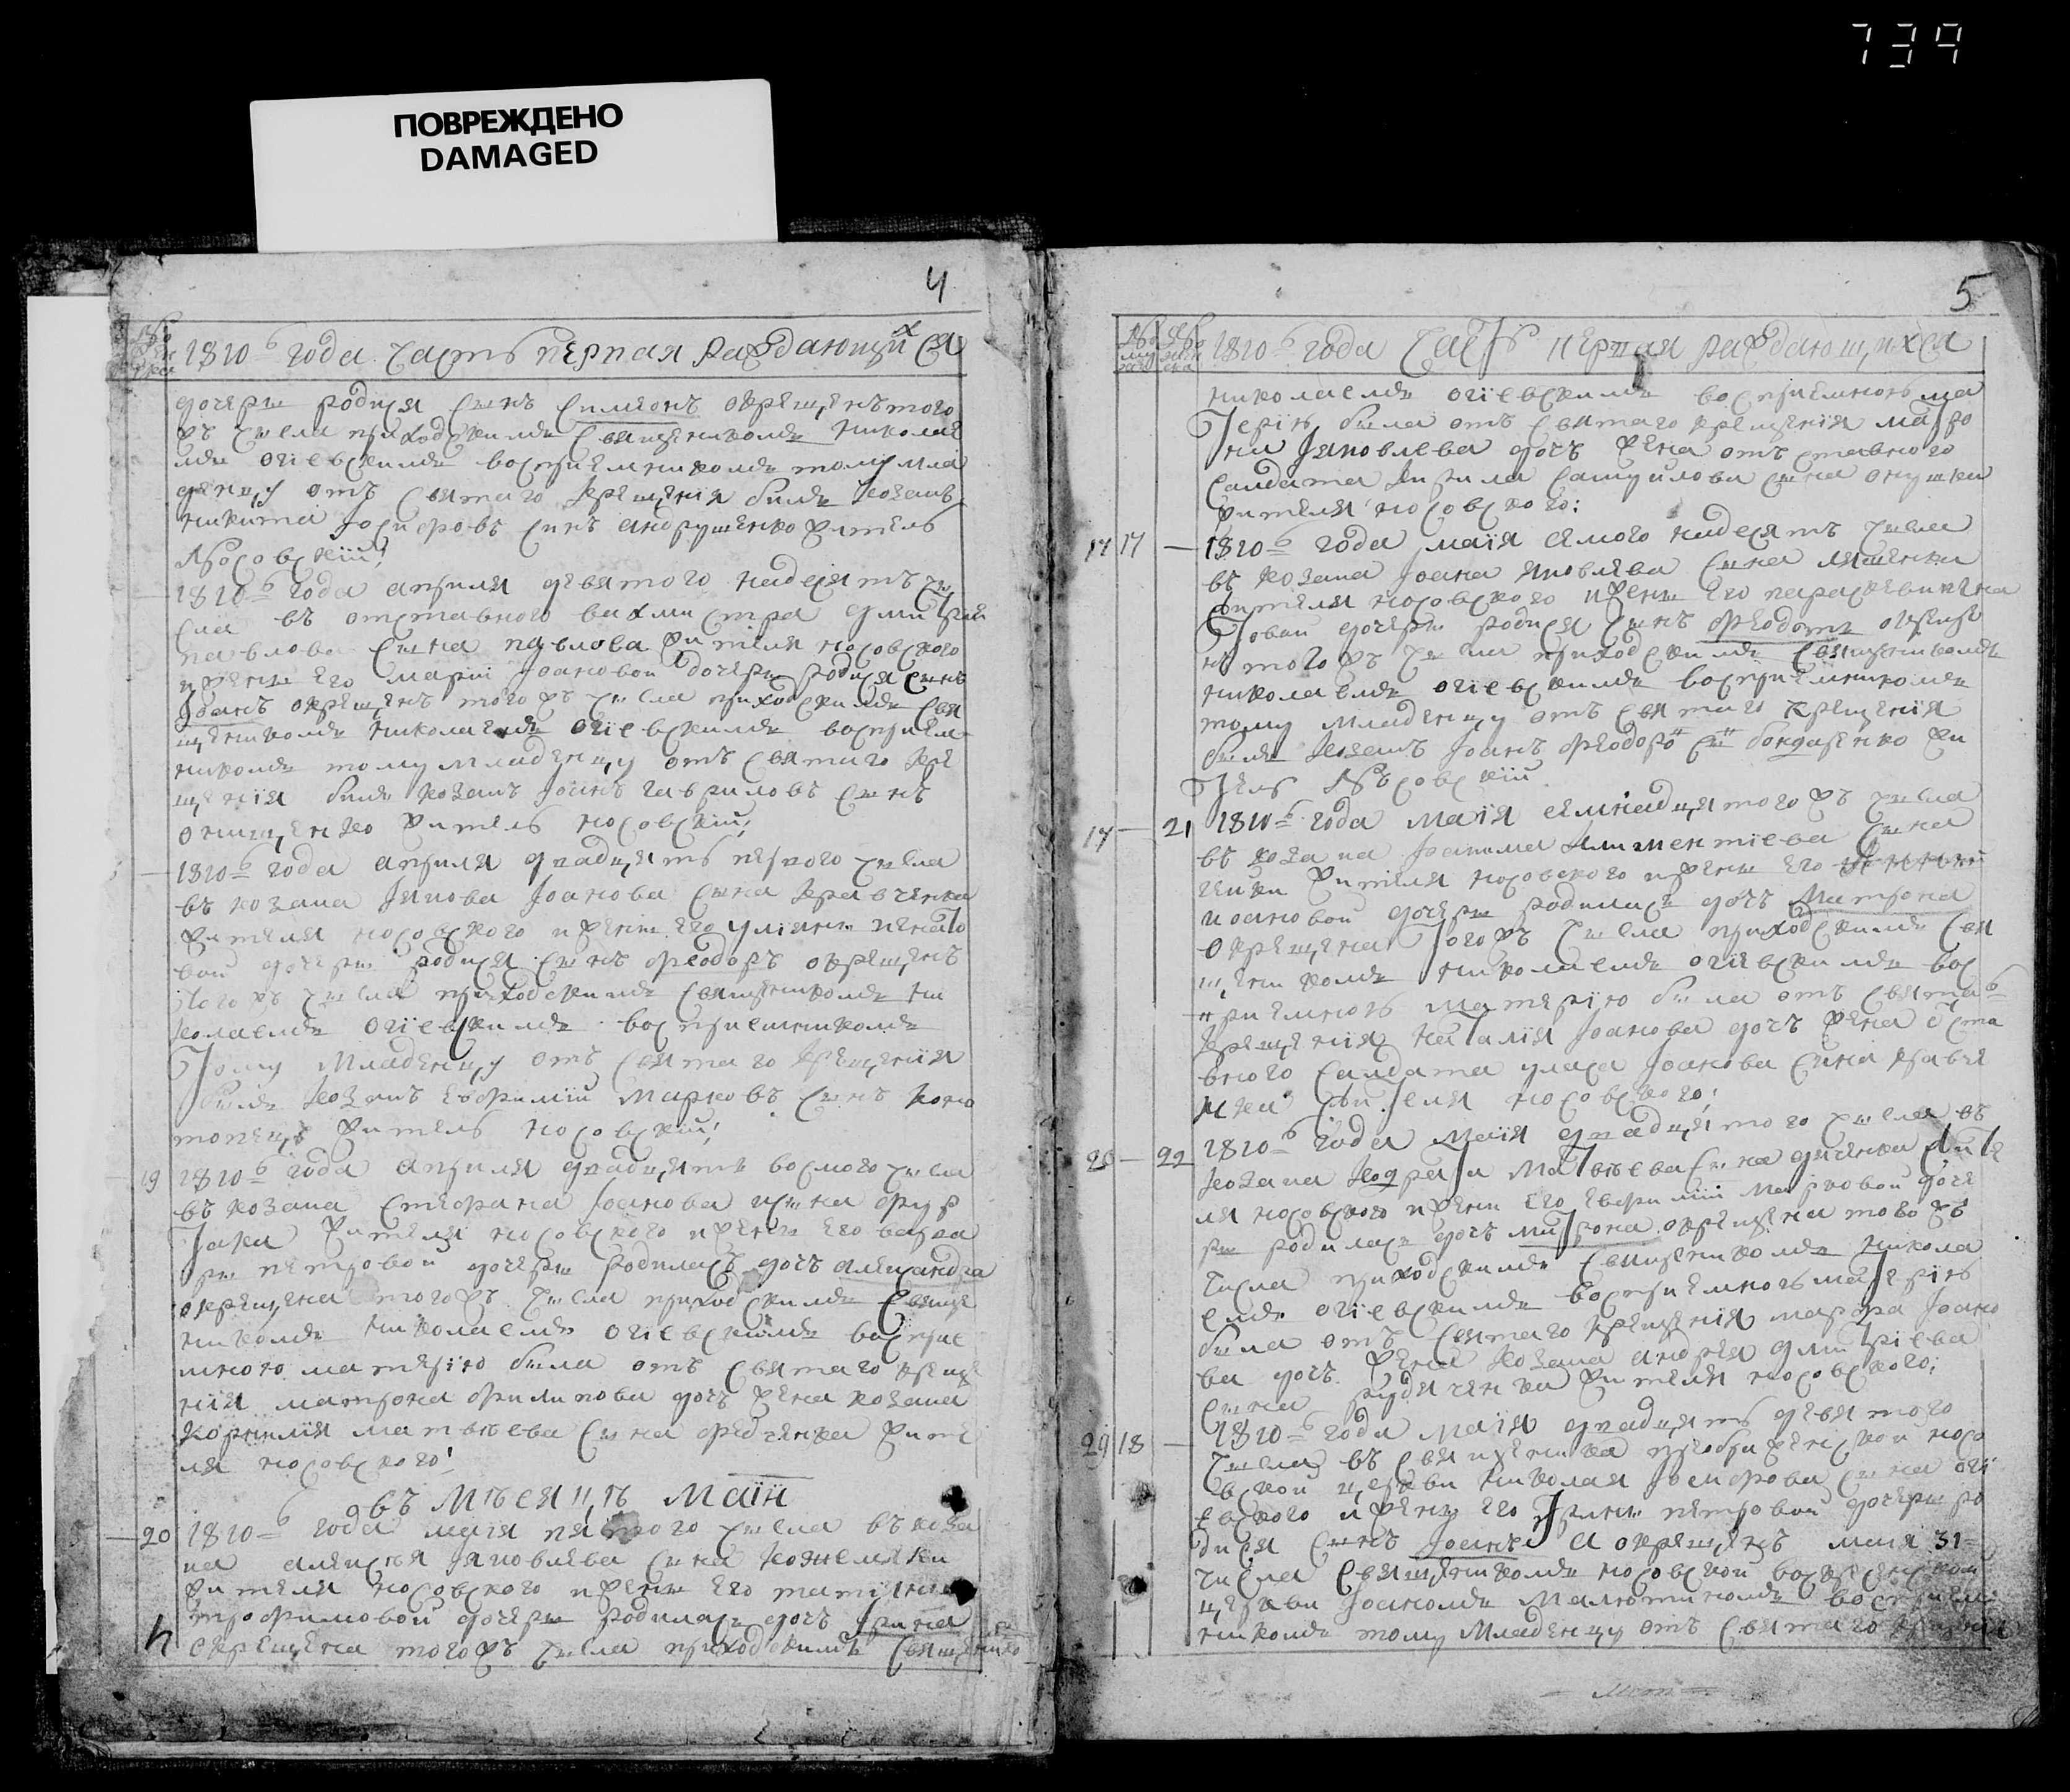 739
ПОВРЕЖДЕНО
DAMAGED
4
1810 года часть первая раждающихся
дочеры родися сынъ Симеонъ окрещенъ того
жъ числа приходскимъ священикомъ Николае
мъ Огіевскимъ восприемникомъ тому мла
денцу отъ святаго крещенія былъ козакъ
Никита Іосифовъ синъ Андрушенко житель
Носовскій;
1810 года априля девятого надесятъ чи
сла въ отставного вахмистра Дмитрія
Павлова сына Павлова жителя носовского
и жены его Маріи Іоановой дочеры родися сынъ
Іоанъ окрещенъ того жъ числа приходскимъ свя
щеникомъ Николаемъ Огіевскимъ восприем
никомъ тому младенцу отъ святаго кре
щенія былъ козакъ Іоанъ Гавриловъ сынъ
Онищенко житель носовскій;
1810 года априля двадцять первого числа
въ козака Якова Іоанова сына Кравченка
жителя носовского и жены его Уліяны
вой дочеры родися сынъ Феодоръ окрещенъ
того жъ числа приходскимъ священикомъ Ни
колаемъ Огіевскимъ восприемникомъ
тому младенцу отъ святаго крещенія
былъ козакъ Евфимій Марковъ сынъ Коно
топецъ житель носовскій;
19 1810 года априля двадцять восмого числа
въ козака Стефана Іоанова сына
жителя носовского и жены его Варва
ры Петровой дочеры родилась дочъ Александра
окрещена того жъ числа приходскимъ свяще
никомъ Николаемъ Огіевскимъ восприе
мною матерію была отъ святаго креще
нія Матрона Филипова дочъ жена козака
Корнилія Матвѣева сына Федченка жите
ля носовского;
въ мѣсяцѣ маіи
20 1810 года маія пятого числа въ коза
ка Алексѣя Яковлева сына Кожемяки
жителя носовского и жены его Татіяны
Трофимовой дочеры родилась дочъ Ирина
окрещена того жъ числа приходскимъ священико
5
1810 года часть первая раждающихся
Николаемъ Огіевскимъ восприемною ма
терію была отъ святаго крещенія Матро
на Яковлева дочъ жена отставного
салдата Кирила Самуилова сына
жителя носовского;
17 17 1810 года маія семого надесятъ числа
въ козака Іоана Яковлева сына Ляшенка
жителя носовского и жены его Параскевии
товой дочеры родися сынъ Феодотъ окреще
нъ того жъ числа приходскимъ священикомъ
Николаемъ Огіевскимъ восприемникомъ
тому младенцу отъ святаго крещенія
былъ козакъ Іоанъ Феодоро сы Бондаренко жи
тель носовскій
17 21 1810 года маія семнадцятого жъ числа
въ козака Іоакима Климентіева сына
жителя носовского и жены его
Иоановой дочеры родилась дочъ Матрона
окрещена того жъ числа приходскимъ свя
щеникомъ Николаемъ Огіевскимъ вос
приемною матерію была отъ свята
крещенія Наталія Іоанова дочъ жена отста
вного салдата Іоанова сина Кравче
нка жителя носовского;
20 22 1810 года маія двадцятого числа въ
козака Кодрата Матвѣева сына жите
ля носовского и жены его Евфиміи Марковой доче
ры родилась дочъ Матрона окрещена того жъ
числа приходскимъ священикомъ Никола
емъ Огіевскимъ восприемною матерію
была отъ святаго крещенія Марфа Іоано
ва дочъ жена козака Андрея Дмитріева
сына жителя носовского;
29 18 1810 года маія двадцять девятого
числа въ священика преображенской носо
вской церкви Николая Іосифова сына Огі
евского и жены его Ирины Петровой дочеры ро
дися сынъ Іоанъ а окрещенъ маія 31
числа священикомъ носовской воскресенской
церкви Іоаномъ Малютиномъ восприем
никомъ тому младенцу отъ святаго крещенія